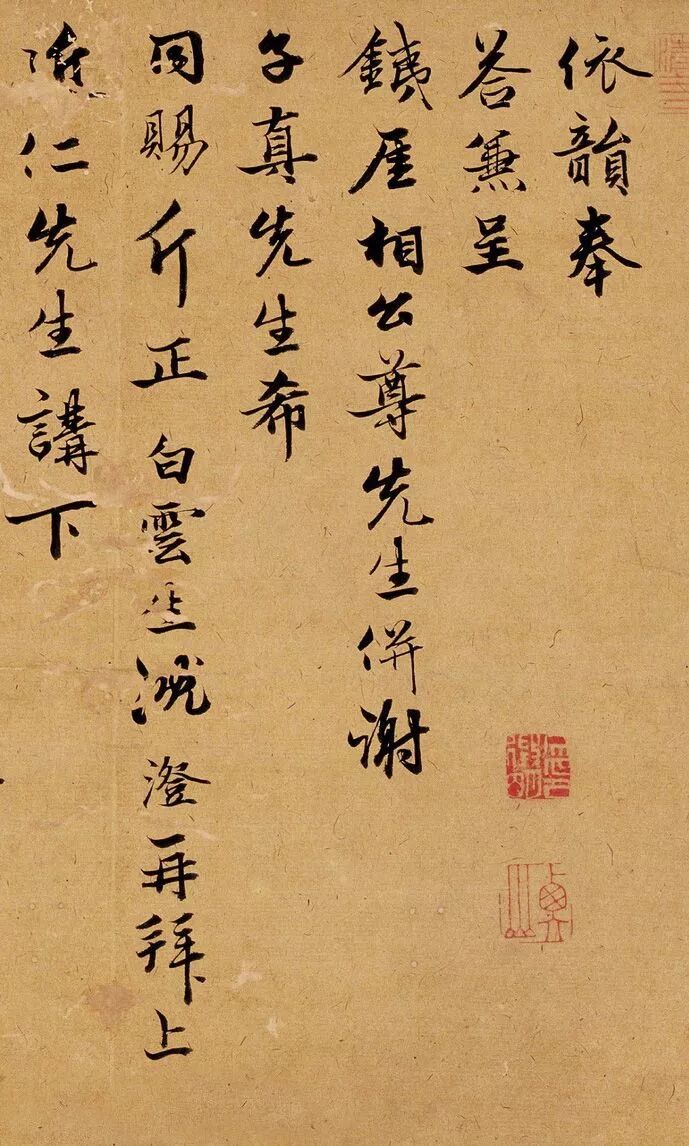 依韻奉
答兼呈
銕厓相公尊先生併謝
子真先生希
同賜斤正 白雲生 澄再拜上
仁先生講下